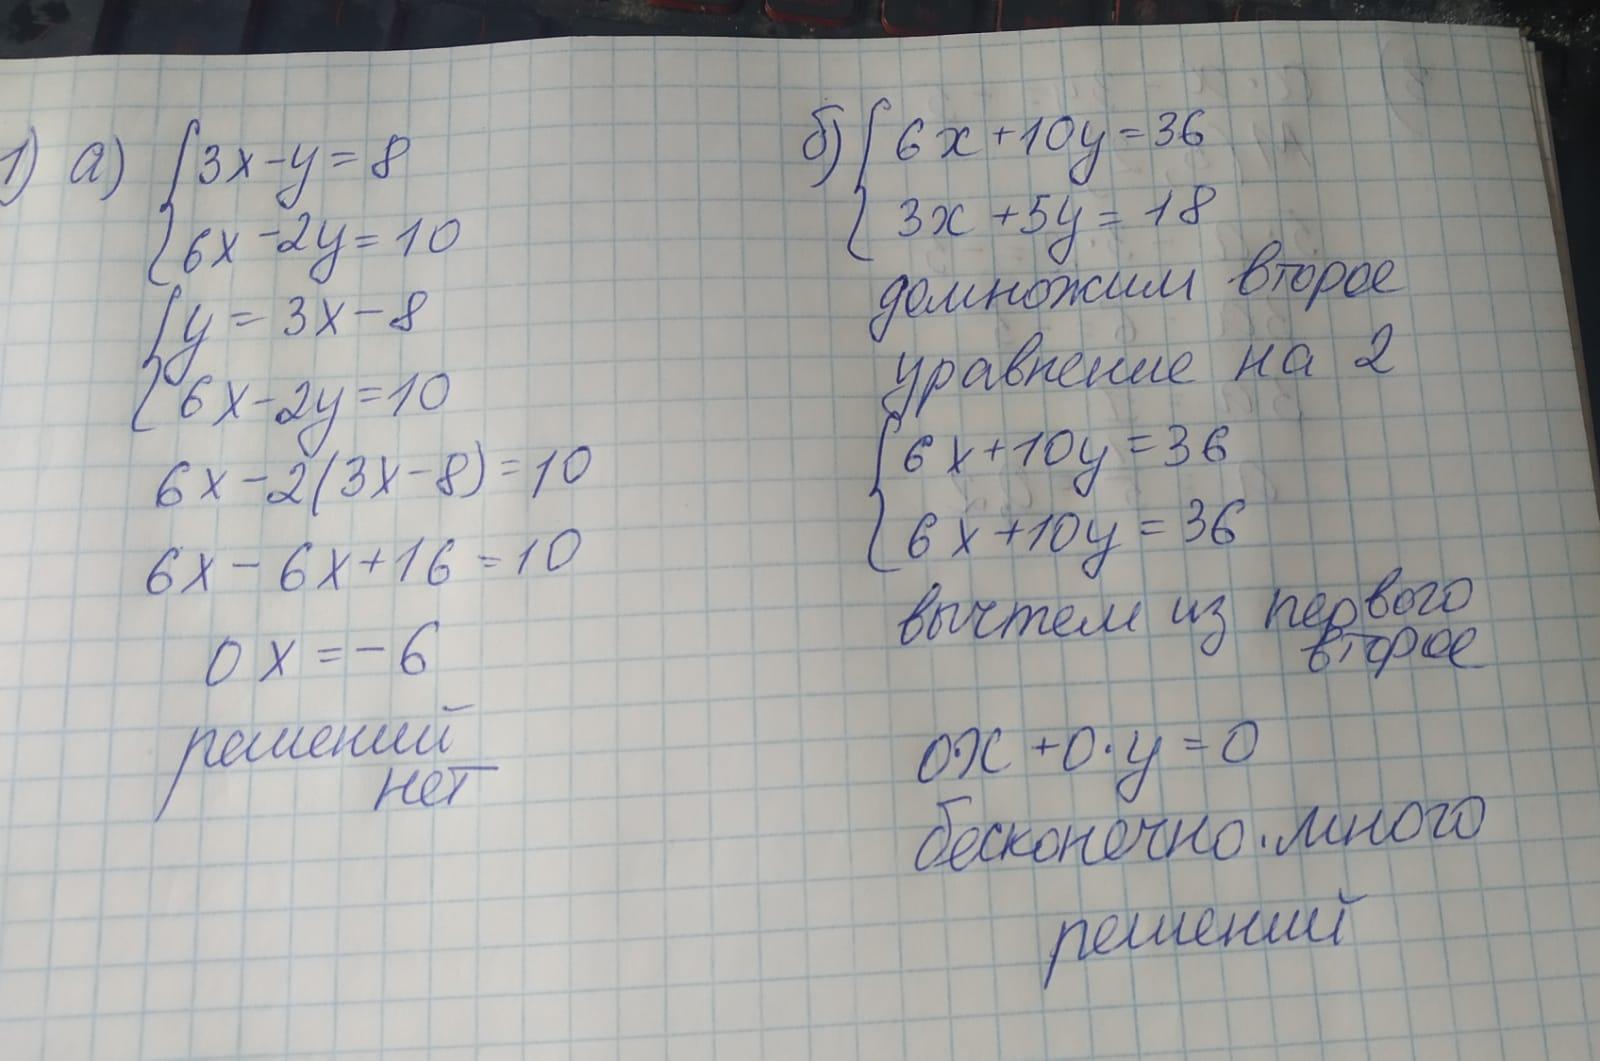 1) а) {3x-y=8
6x-2y=10
{y=3x-8
6x-2y=10
6x-2(3x-8)=10
6x-6x+16=10
0x=-6
решений
нет
б) {6x+10y=36
3x+5y=18
домножим второе
уравнение на 2
{6x+10y=36
6x+10y=36
вычтем из первого
второе
0·x+0·y=0
бесконечно много
решений